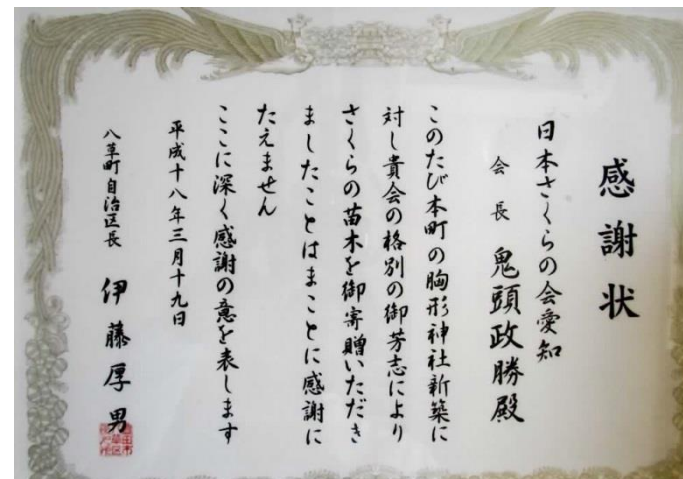 感謝状
日本さくらの会愛知
会長 鬼頭政勝殿
このたび本町の胸形神社新築に
対し貴会の格別の御芳志により
さくらの苗木を御寄贈いただき
ましたことはまことに感謝に
たえません
ここに深く感謝の意を表します
平成十八年三月十九日
八草町自治区長 伊藤厚男